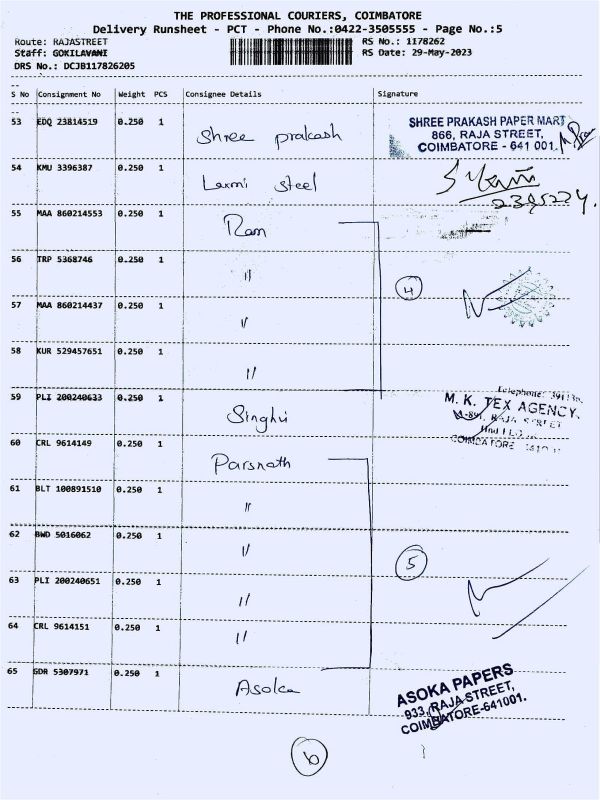 THE PROFESSIONAL COURIERS, COIMBATORE
Delivery Runsheet - PCT - Phone No.:0422-3505555 - Page No.:5
Route: RAJASTREET RS No.: 1178262
Staff: GOKILAVANI RS Date: 29-May-2023
DRS No.: DCJB117826205
S No Consignment No Weight PCS Consignee Details Signature
53 EDQ 23814519 0.250 1 Shree prakash
SHREE PRAKASH PAPER MART
866, RAJA STREET,
COIMBATORE - 641 001.
54 KMU 3396387 0.250 1 Laxmi Steel
2395224.
55 MAA 860214553 0.250 1 Ram
56 TRP 5368746 0.250 1 "
4
57 MAA 860214437 0.250 1 "
58 KUR 529457651 0.250 1 "
59 PLI 200240633 0.250 1 Singhvi
Telephone:
M. K. TEX AGENCY.
RAJA STREET
COIMBATORE
60 CRL 9614149 0.250 1 Parsnath
61 BLT 100891510 0.250 1 "
62 BWD 5016062 0.250 1 "
5
63 PLI 200240651 0.250 1 "
64 CRL 9614151 0.250 1 "
65 GDR 5307971 0.250 1 Asoka
ASOKA PAPERS
933, RAJA STREET,
COIMBATORE-641001.